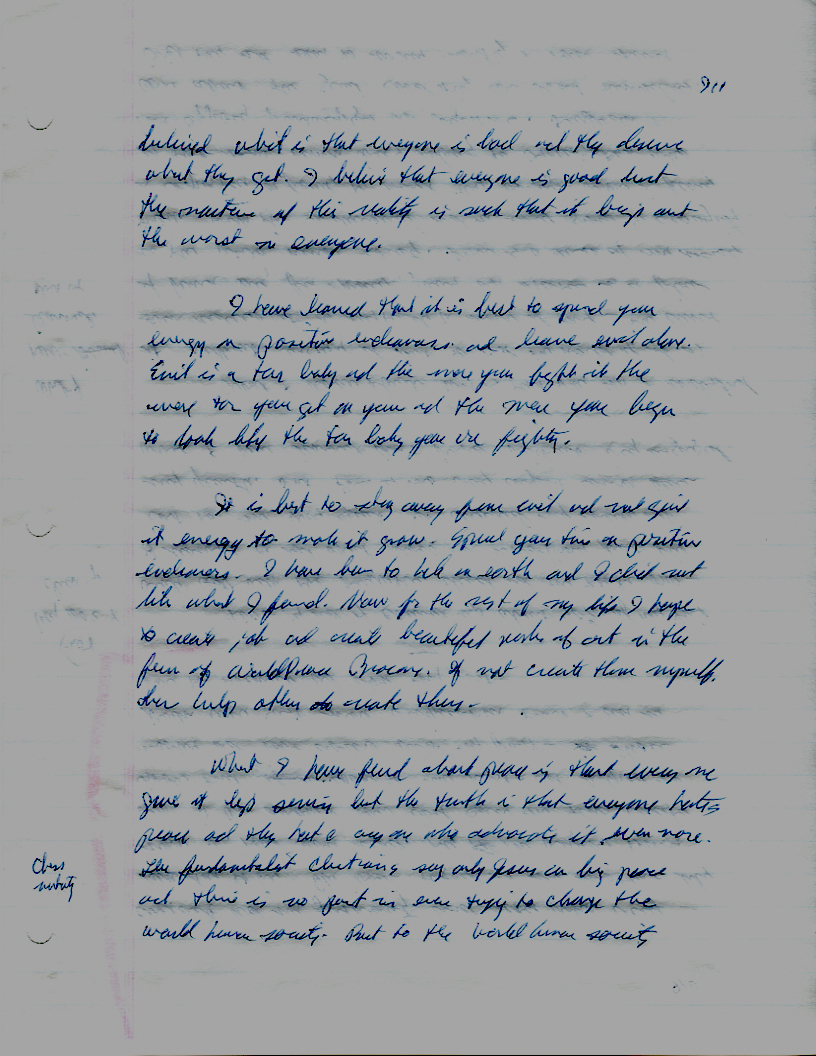 911
believed what is is that everyone is bad and they deserve
what they get. I believe that everyone is good but
the nature of this reality is such that it brings out
the worst in everyone.
I have learned that it is best to spend your
energy on positive endeavors and leave evil alone.
Evil is a tar baby and the more you fight it the
more tar you get on you and the more you begin
to look like the tar baby you are fighting.
It is best to stay away from evil and not give
it energy to make it grow. Spend your time on positive
endeavors. I have been to hell on earth and I did not
like what I found. Now for the rest of my life I hope
to create job and create beautiful works of art in the
form of World Peace Beacons. If not create them myself,
then help others to create them.
What I have found about peace is that every one
gives it lip service but the truth is that everyone hates
peace and they hate anyone who advocate it even more.
The fundamentalist Christians say only Jesus can bring peace
and there is no point in even trying to change the
world human society. But to the world human society